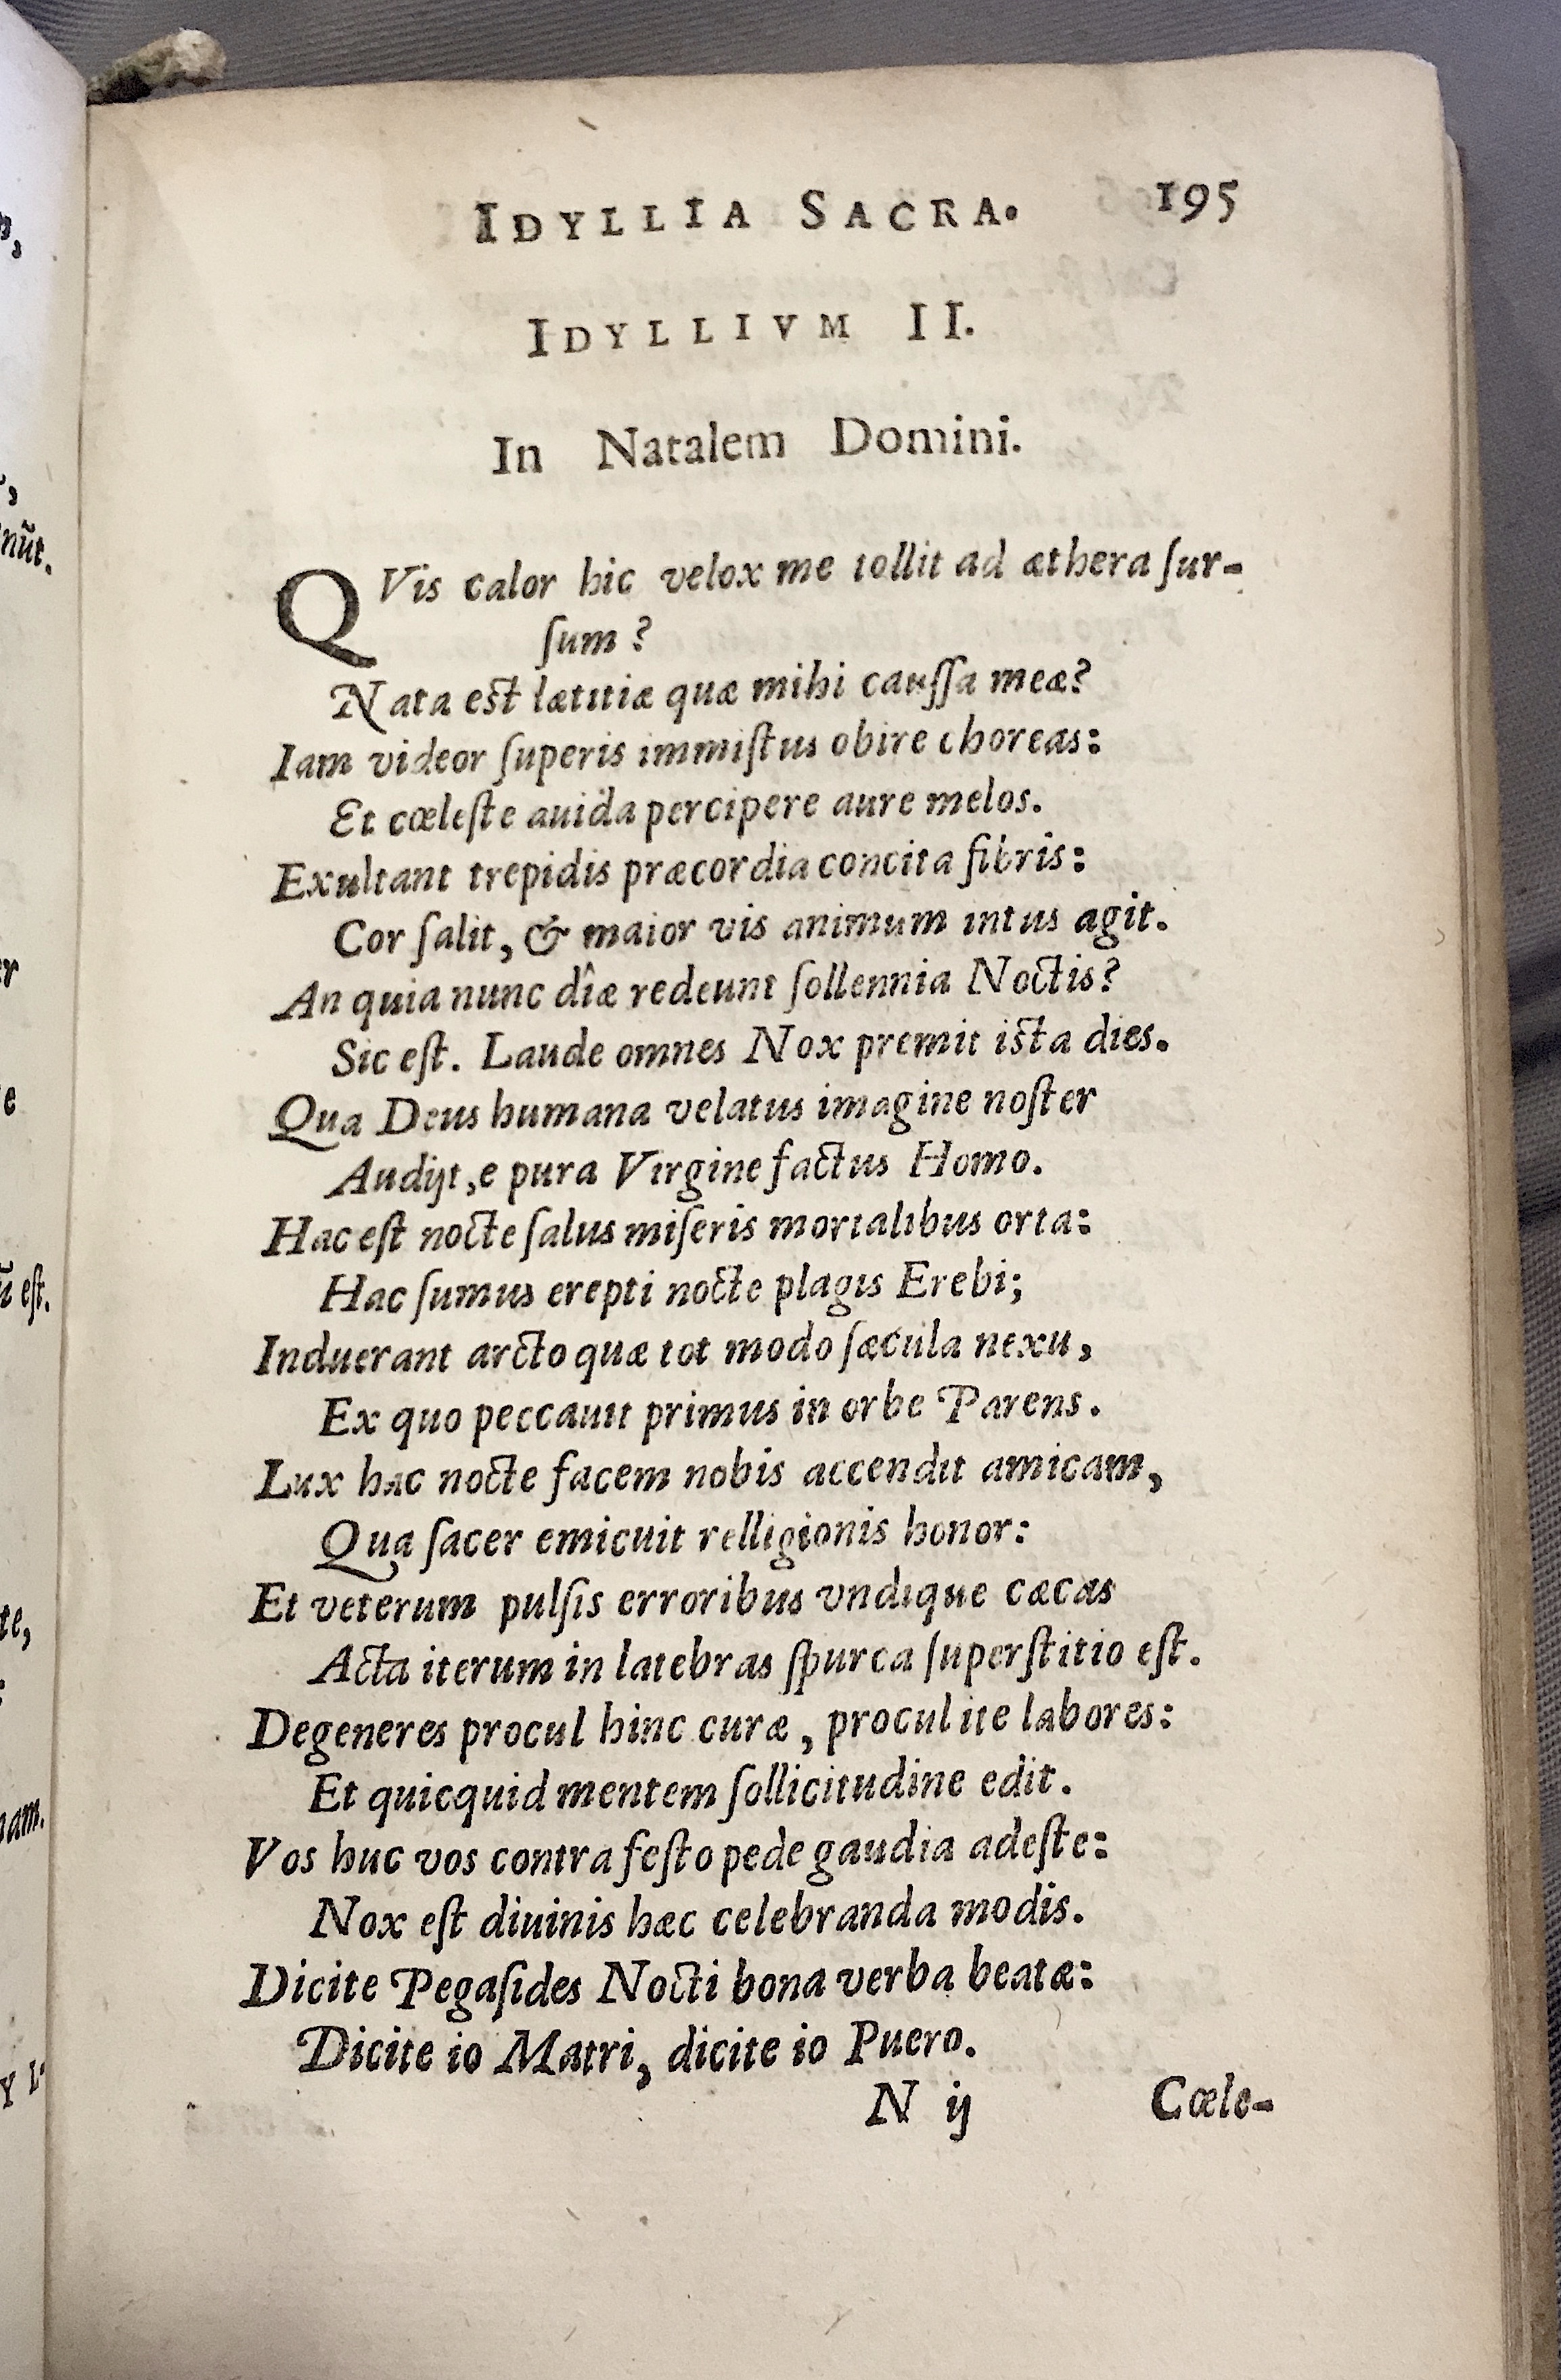 IDYLLIA SACRA. 195
IDYLLIVM II.
In Natalem Domini.
QVis calor hic velox me tollit ad æthera ſur-
ſum?
Nata est lætitiæ quæ mihi cauſſa meæ?
Iam videor ſuperis immiſtus obire choreas:
Et cœleſte auida percipere aure melos.
Exultant trepidis præcordia concita fibris:
Cor ſalit, & maior vis animum intus agit.
An quia nunc dîæ redeunt ſollennia Noctis?
Sic eſt. Laude omnes Nox premit ista dies.
Qua Deus humana velatus imagine noſter
Audijt, e pura Virgine factus Homo.
Hac eſt nocte ſalus miſeris mortalibus orta:
Hac ſumus erepti nocte plagis Erebi;
Induerant arcto quæ tot modo ſæcula nexu,
Ex quo peccauit primus in orbe Parens.
Lux hac nocte facem nobis accendit amicam,
Qua ſacer emicuit relligionis honor:
Et veterum pulſis erroribus vndique cæcas
Acta iterum in latebras ſpurca ſuperſtitio eſt.
Degeneres procul hinc curæ, procul ite labores:
Et quicquid mentem ſollicitudine edit.
Vos huc vos contra feſto pede gaudia adeſte:
Nox eſt diuinis hæc celebranda modis.
Dicite Pegaſides Nocti bona verba beatæ:
Dicite io Matri, dicite io Puero.
N ij Cœle-